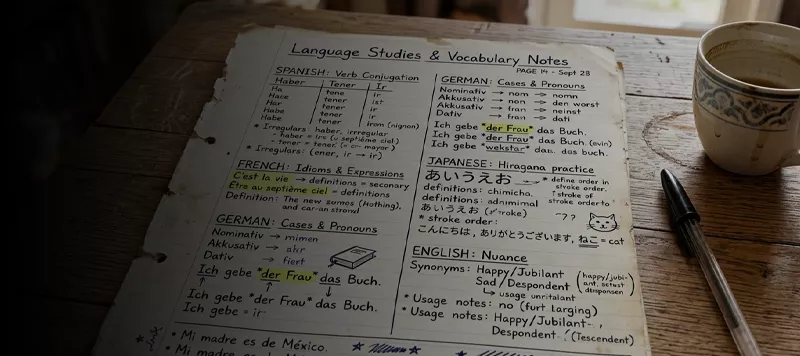 Language Studies & Vocabulary Notes
PAGE 14 - Sept 28
SPANISH: Verb Conjugation
Haber Tener Ir
Ha tene ir
Hace tener ist
Har tener ir
Habe tener ir
Habe tener
* Irregulars: haber, irrregular
- haber = irs (u septième ciel)
- tener = tener
* Irregulars: (ener, ir → ir)
FRENCH: Idioms & Expressions
C'est la vie → definitions = seconary
Être au septième ciel = definitions
Definition: The new somos
and car-an strond
GERMAN: Cases & Pronouns
Nominativ → mimen
Akkusativ → ahr
Dativ → fiert
Ich gebe *der Frau* das Buch.
Ich gebe *der Frau* das Buch.
Ich gebe = ir
* Mi madre es de México.
* Mi madre es de
GERMAN: Cases & Pronouns
Nominativ → nom → nomn
Akkusativ → nom → den worst
Akkusativ → fran → neinst
Dativ → fran → dati
Ich gebe *der Frau* das Buch.
Ich gebe *der Frau* das Buch.
Ich gebe *wekstar* das buch.
JAPANESE: Hiragana practice
あいうえお
* define order in
stroke order.
definitions: chimicha,
definitions: adnimimal
stroke order to
あいうえお
- ??
* stroke order:
こんにちは, ありがとうございます, ねこ = cat
ENGLISH: Nuance
Synonyms: Happy/Jubilant
Sad/Despondent
↳ usage unritalant
* Usage notes: no (furt larging)
* Usage notes: Happy/Jubilant
Despondent (Tescendent)